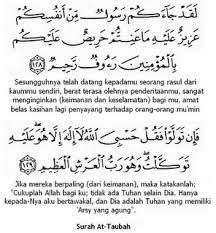 لَقَدْ جَاءَكُمْ رَسُولٌ مِنْ أَنْفُسِكُمْ
عَزِيزٌ عَلَيْهِ مَا عَنِتُّمْ حَرِيصٌ عَلَيْكُمْ
بِالْمُؤْمِنِينَ رَءُوفٌ رَحِيمٌ ١٢٨
Sesungguhnya telah datang kepadamu seorang rasul dari
kaummu sendiri, berat terasa olehnya penderitaanmu, sangat
menginginkan (keimanan dan keselamatan) bagi mu, amat
belas kasihan lagi penyayang terhadap orang-orang mu'min
فَإِنْ تَوَلَّوْا فَقُلْ حَسْبِيَ اللَّهُ لَا إِلَهَ إِلَّا هُوَ عَلَيْهِ
تَوَكَّلْتُ وَهُوَ رَبُّ الْعَرْشِ الْعَظِيمِ ١٢٩
Jika mereka berpaling (dari keimanan), maka katakanlah;
"Cukuplah Allah bagi ku; tidak ada Tuhan selain Dia. Hanya
kepada-Nya aku bertawakal, dan Dia adalah Tuhan yang memiliki
'Arsy yang agung".
Surah At-Taubah